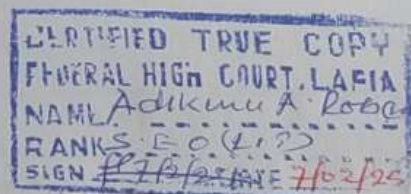 CERTIFIED TRUE COPY
FEDERAL HIGH COURT, LAFIA
NAME Adikwu A.
RANK S.E.O (LIT)
SIGN DATE 7/02/25